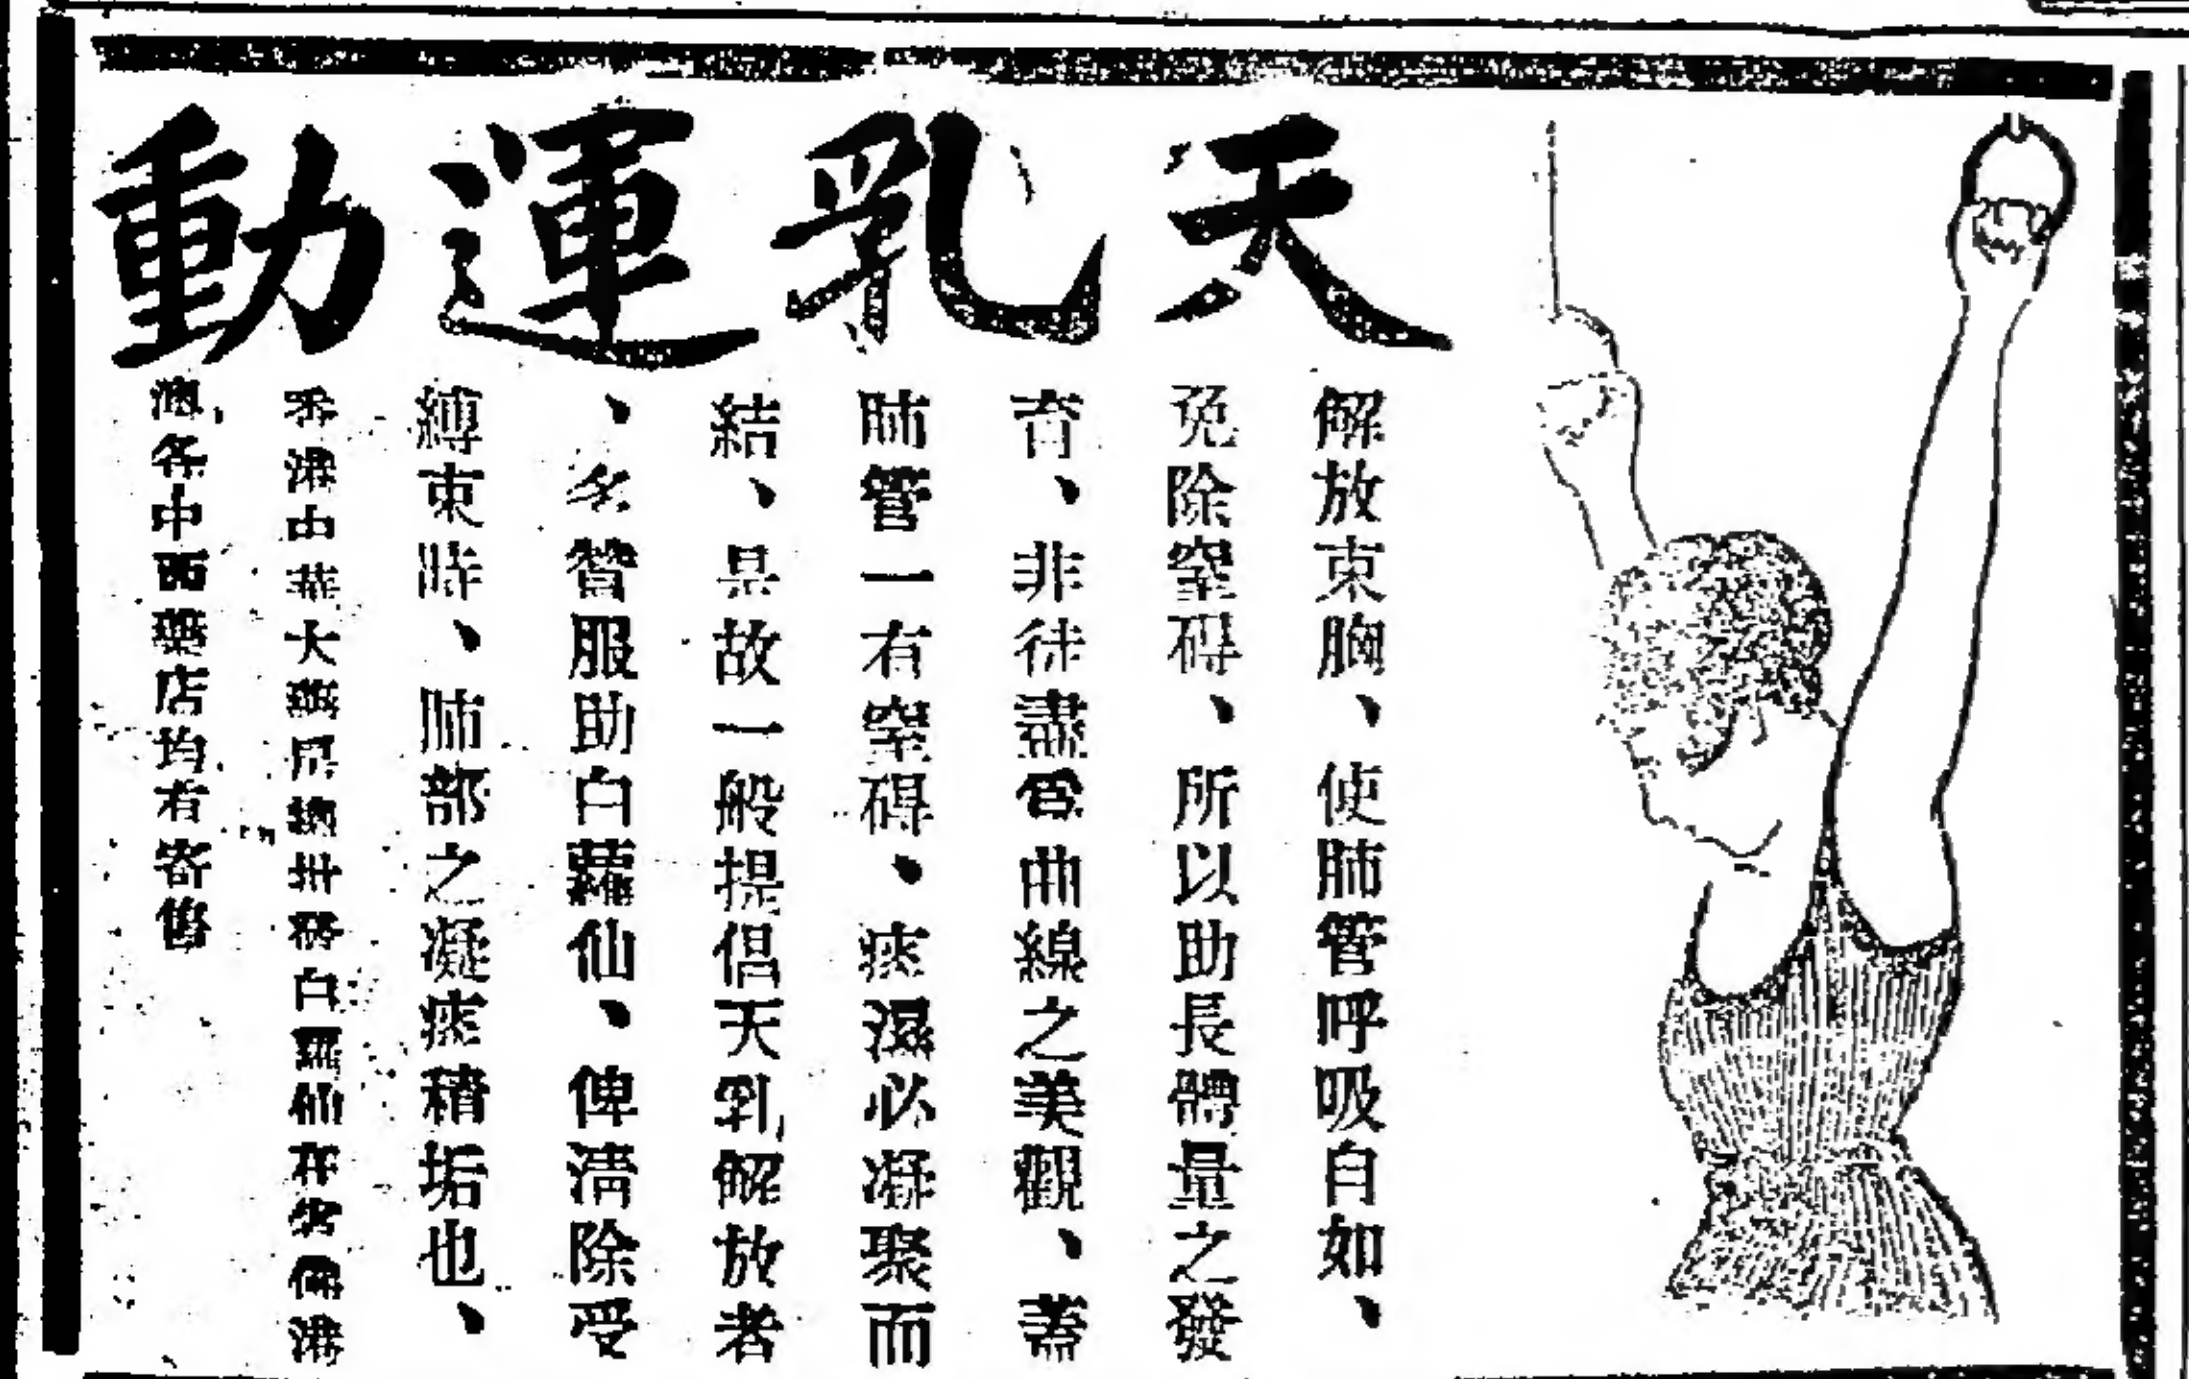 天乳運動
解放束胸、使肺管呼吸自如、
免除窒碍、所以助長體量之發
育、非徒盡爲曲線之美觀、蓋
肺管一有窒碍、痰濕必凝聚而
結、是故一般提倡天乳解放者
、多贊服助白蘿仙、俾淸除受
縛束時、肺部之凝痰積垢也、
香港中華大藥房總批發白蘿仙在省佛港
澳各中西藥店均有寄售